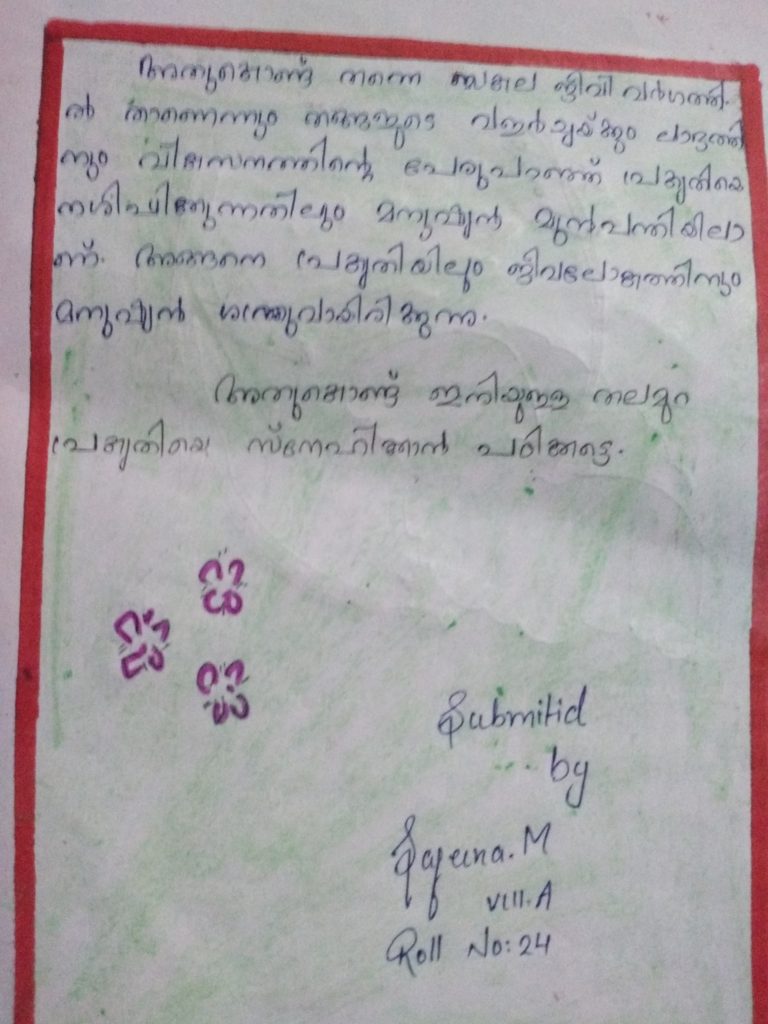 അതുകൊണ്ട് തന്നെ സകല ജീവി വർഗത്തി-
ൽ താണെന്നും തങ്ങളുടെ വളർച്ചയ്ക്കും ലാഭത്തി
നും വികസനത്തിന്റെ പേരുപറഞ്ഞ് പ്രകൃതിയെ
നശിപ്പിക്കുന്നതിലും മനുഷ്യൻ മുൻപന്തിയിലാ
ണ്. അങ്ങനെ പ്രകൃതിയിലും ജീവലോകത്തിനും
മനുഷ്യൻ ശത്രുവായിരിക്കുന്നു.
അതുകൊണ്ട് ഇനിയുള്ള തലമുറ
പ്രകൃതിയെ സ്നേഹിക്കാൻ പഠിക്കട്ടെ.
Submitid
by
M
VIII.A
Roll No: 24